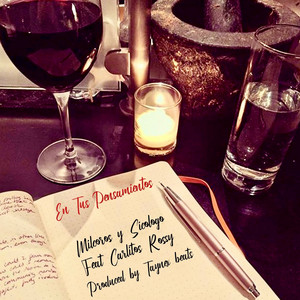 En Tus Pensamientos
Milcoros y Sicologo
Feat Carlitos Rossy
Produced by Tayno beats